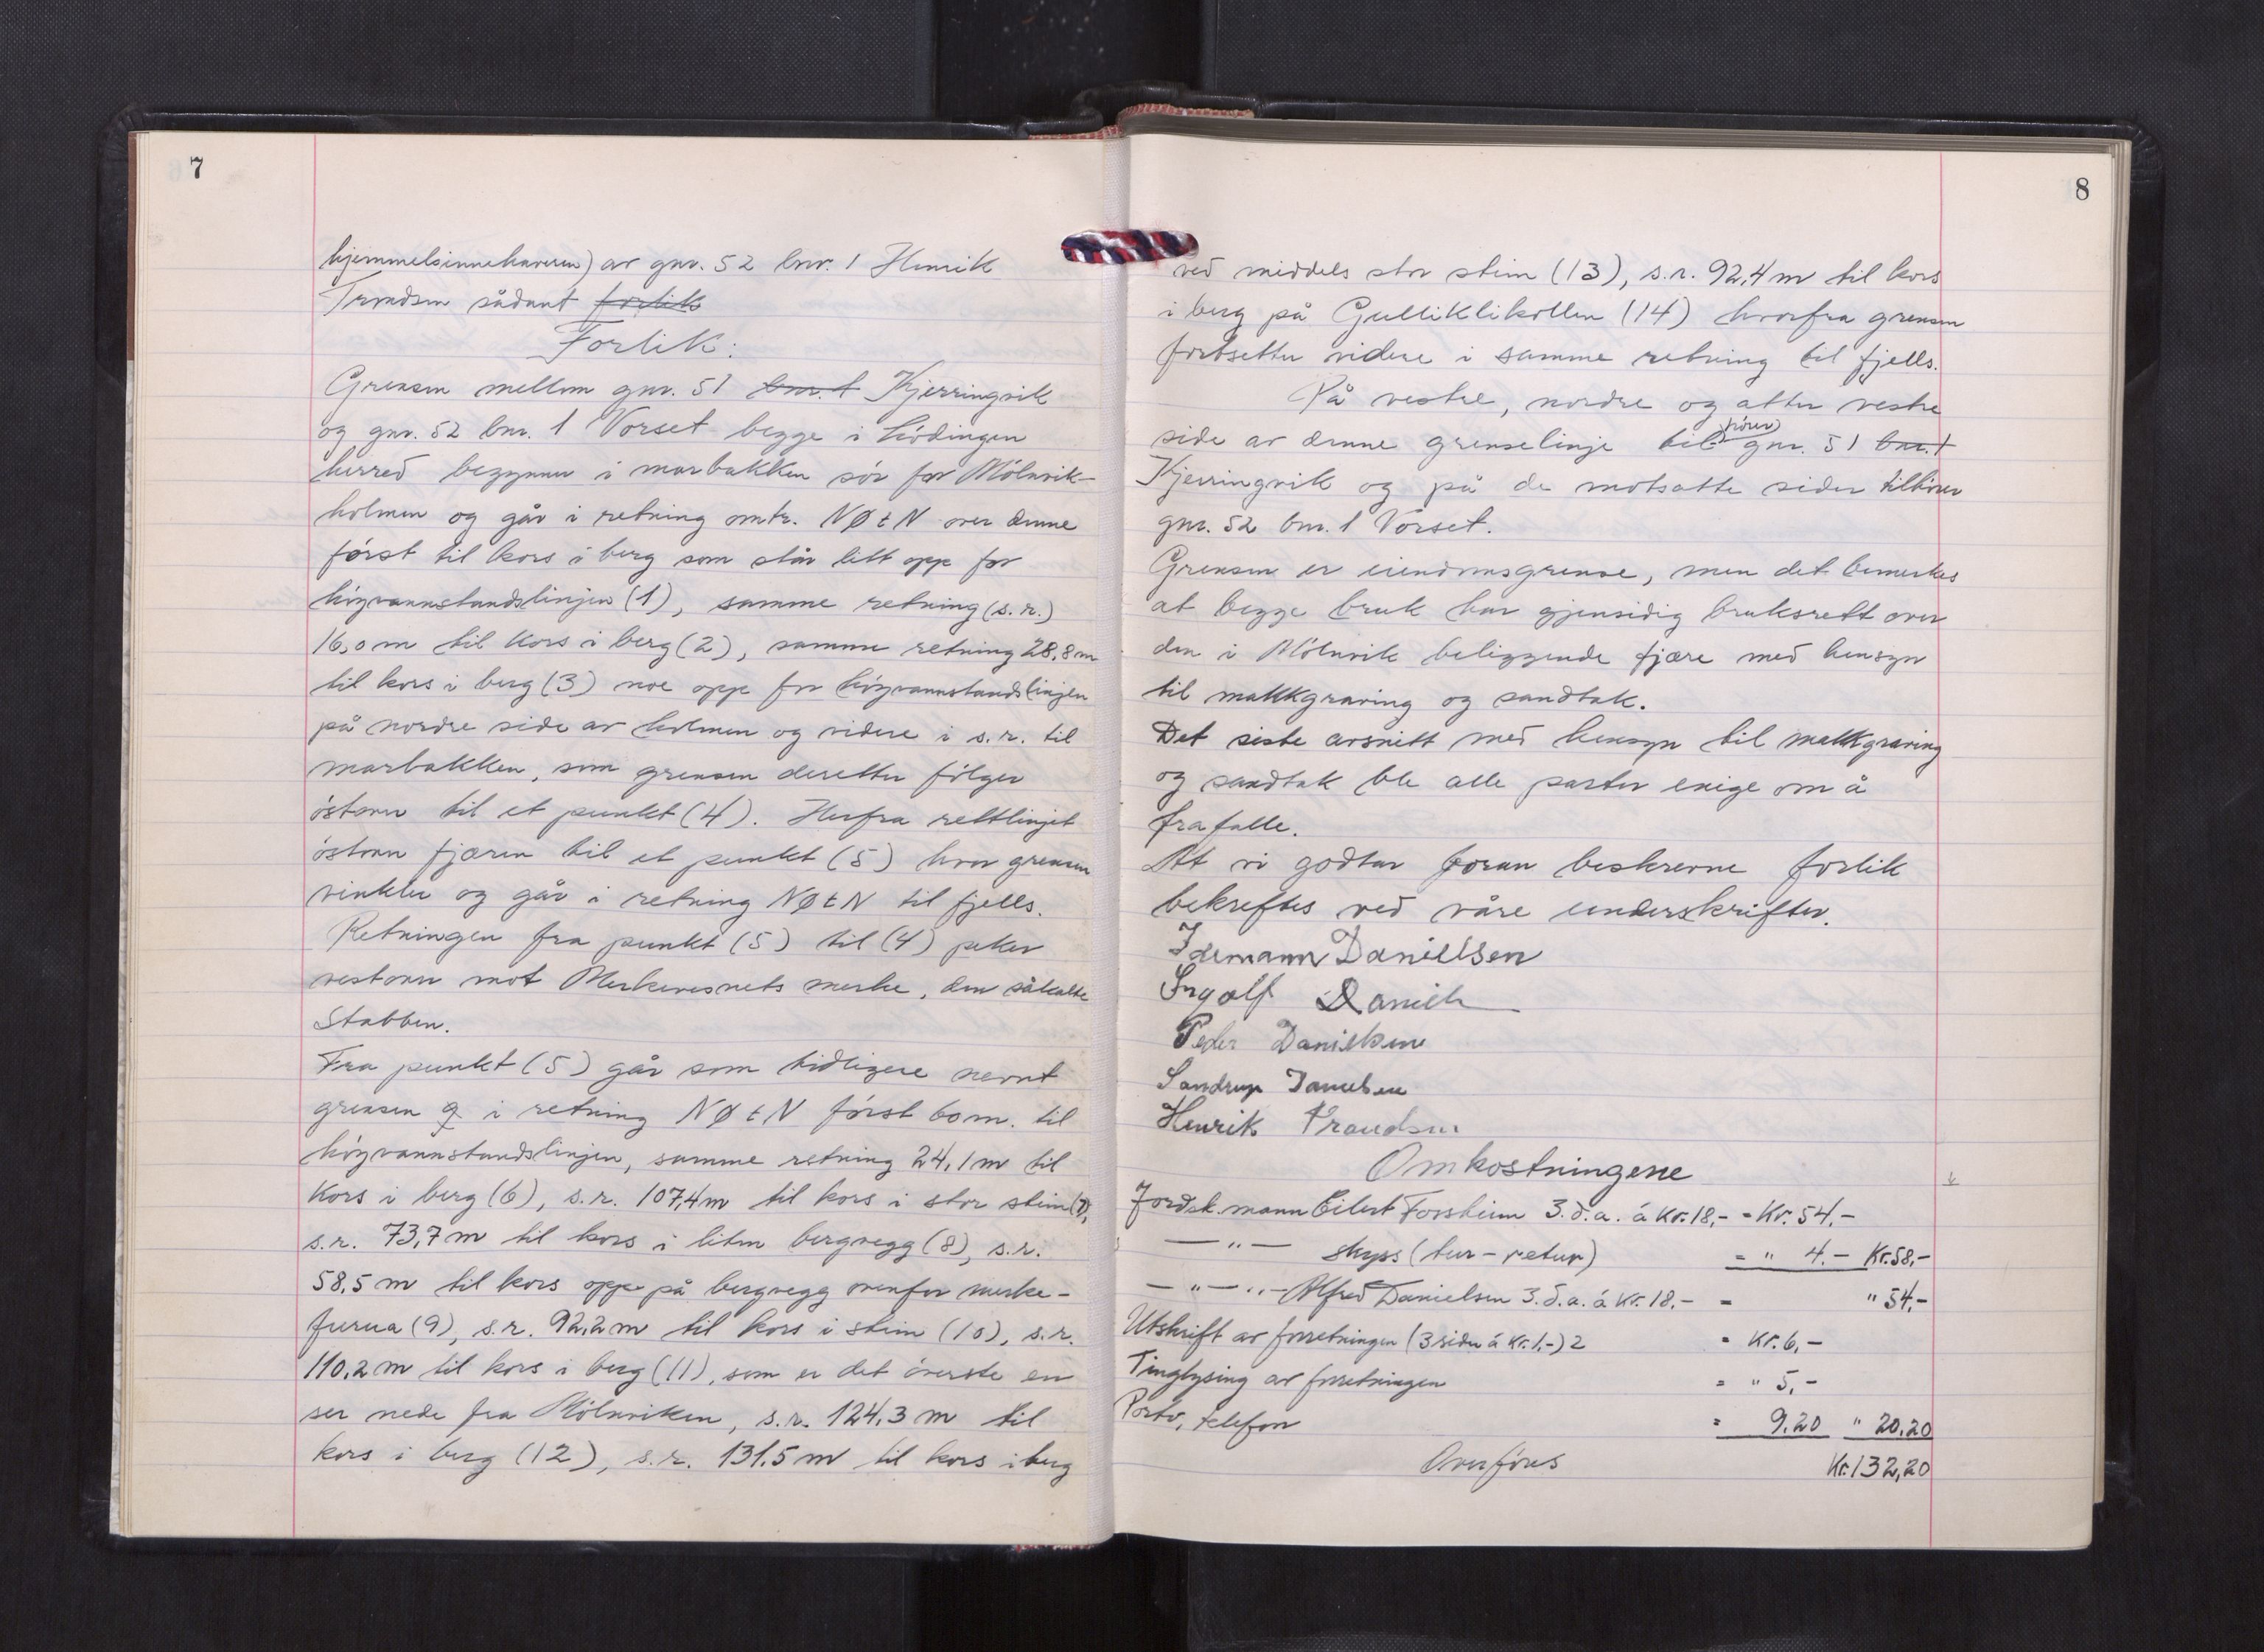 7
hjemmelsinnehaveren) av gnr. 52 bnr. 1 Henrik
Trondsen sådant forlik
Forlik:
Grensen mellem gnr. 51 bnr. 1 Kjerringvik
og gnr. 52 bnr. 1 Vorset begge i Lödingen
herred begynner i marbakken sör for Mölnvik-
holmen og går i retning omtr. NØtN over denne
först til kors i berg som står litt opp for
höyvannstandslinjen (1), samme retning (s.r.)
16,0 m til kors i berg (2), samme retning 28,8 m
til kors i berg (3) noe opp for höyvannstandslinjen
på nordre side av holmen og videre i s.r. til
marbakken, som grensen deretter fölger
östover til et punkt (4). Herfra rettlinjet
östover fjæren til et punkt (5) hvor grensen
vinkler og går i retning NØtN til fjells.
Retningen fra punkt (5) til (4) peker
vestover mot Merkevesnets merke, den såkalte
Stabben.
Fra punkt (5) går som tidligere nevnt
grensen g i retning NØtN först 60 m. til
höyvannstandslinjen, samme retning 24,1 m til
kors i berg (6), s.r. 107,4 m til kors i stor stein (7),
s.r. 73,7 m til kors i liten bergvegg (8), s.r.
58,5 m til kors oppe på bergvegg ovenfor merke-
furua (9), s.r. 92,2 m til kors i stein (10), s.r.
110,2 m til kors i berg (11), som er det överste en
ser nede fra Mölnviken, s.r. 124,3 m til
kors i berg (12), s.r. 131,5 m til kors i berg
8
ved middels stor stein (13), s.r. 92,4 m til kors
i berg på Gulliklikollen (14) hvorfra grensen
fortsetter videre i samme retning til fjells.
På vestre, nordre og atter vestre
side av denne grenselinje tilhörer gnr. 51 bnr. 1
Kjerringvik og på de motsatte sider tilhörer
gnr. 52 bnr. 1 Vorset.
Grensen er eiendomsgrense, men det bemerkes
at begge bruk har gjensidig bruksrett over
den i Mölnvik beliggende fjære med hensyn
til makkgraving og sandtak.
Det siste avsnitt med hensyn til makkgraving
og sandtak ble alle parter enige om å
frafalle.
At vi godtar foran beskrevne forlik
bekreftes ved våre underskrifter.
Idemann Daniellsen
Ingolf Daniels
Peder Danielsen
Sandrup Danielsen
Henrik Trondsen
Omkostningene
Jordsk.mann Eilert Forsheim 3. d.a. á kr. 18,- = Kr. 54,-
— " — skyss (tur-retur) = " 4.- Kr. 58,-
— " — " — Alfred Danielsen 3. d.a. á kr. 18.- = " 54,-
Utskrift av forretningen (3 sider á kr. 1,-) 2 = Kr. 6,-
Tinglysing av forretningen = " 5,-
Porto, telefon = 9.20 " 20.20
Overföres Kr. 132,20